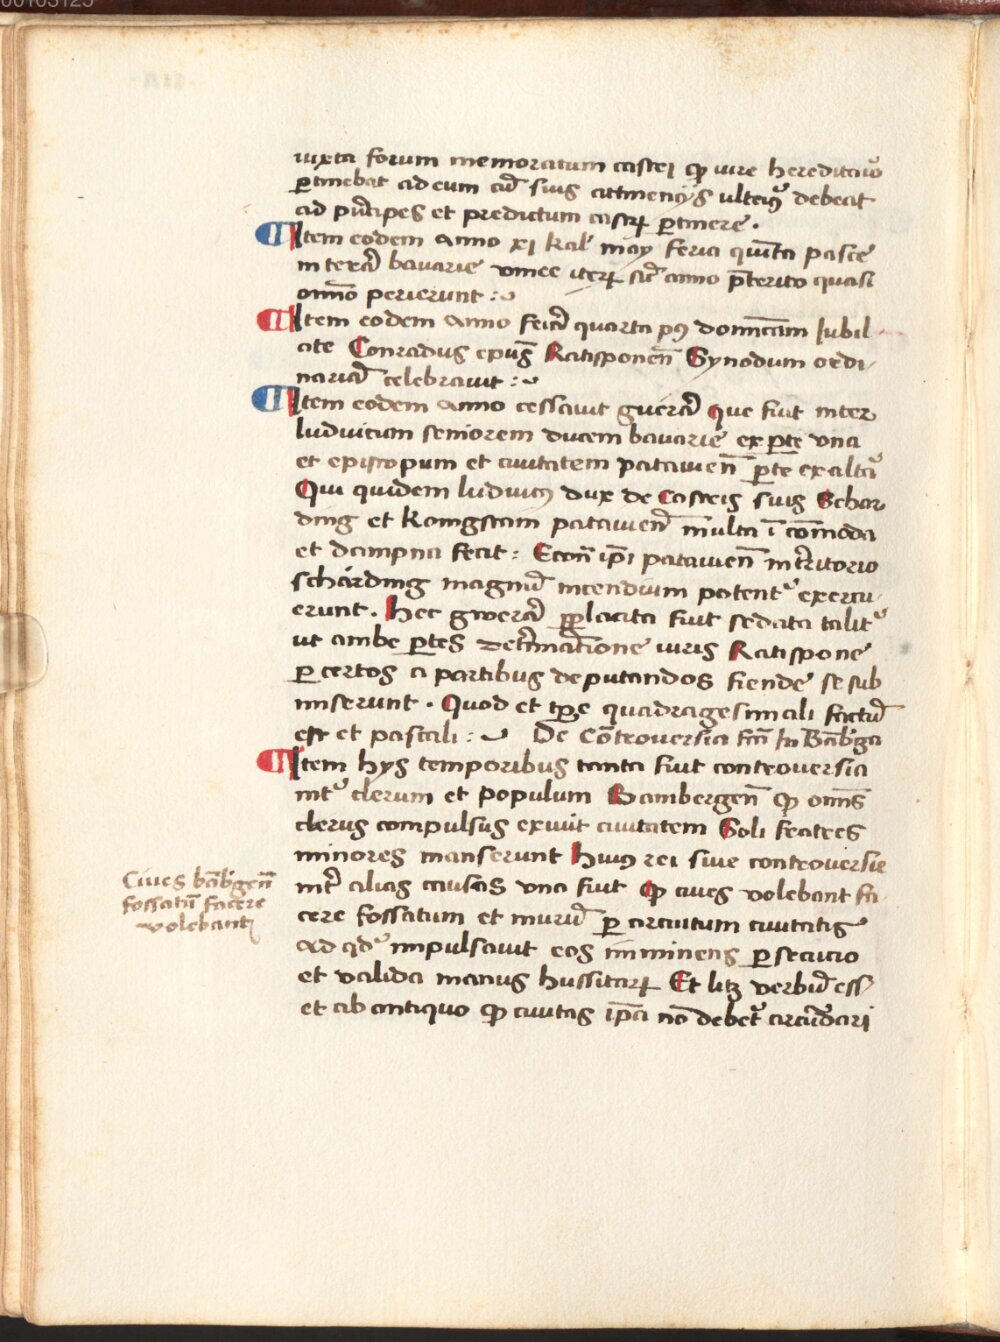 00103125
iuxta forum memoratum castri ꝙ iure hereditaio᷑
ꝑtinebat ad eum cū suis attinencijs ulteiꝰ debeat
ad pͥncipes et predictum castꝝ ꝑtinere .
Item eodem Anno xj kal᷑ may feria quīta pasce
in terra᷑ bauarie vinee iteꝝ sic᷑ anno p̄terito quasi
omīo perierunt :~
Item eodem Anno feia᷑ quarta pꝰ domīcam Iubil-
ate Conradus epūs Ratisponen̄ Synodum ordi-
naria᷑ celebrauit :~
Item eodem Anno cessauit guera᷑ que fuit inter
ludwicum seniorem ducem bauarie ex ꝑte vna
et episcopum et ciuitatem patauien̄ ꝑte ex alta᷑
Qui quidem ludwicꝰ dux de Castris suis Schar
ding et konigstain patauien̄ multa īcōmoda
et dampna fecit : Econ̄ ip̄i patauien̄ in tr̄ritorio
schärding magnū incendium potent᷑ exercu-
erunt . Hec gwera᷑ ꝑ placita fuit sedata talit᷑
ut ambe ꝑtes det᷑minac̄ione iuris Ratispone
ꝑ certos a partibus deputandos fiende se sub
miserunt . Quod et tꝑe quadragesimali factū
est et pascali :~ De Cōtrouersia fc̄a In Bāb᷑ga
Item hys temporibus tanta fuit controuersia
int᷑ clerum et populum Bambergen̄ ꝙ omīs
clerus compulsus exiuit ciuitatem Soli fratres
minores manserunt Huiꝰ rei siue controuersie
int᷑ alias causas vna fuit ꝙ ciues volebant fa-
cere fossatum et murū ꝑ circuitum ciuitatis
Ad qd᷑ impulsauit eos imminens ꝑsecucio
et valida manus hussitaꝝ Et litꝫ verbū ess᷑
et ab antiquo ꝙ ciuitas ip̄a nō debet᷑ circūdari
Ciues bāb᷑gen̄
fossatū facere
volebant